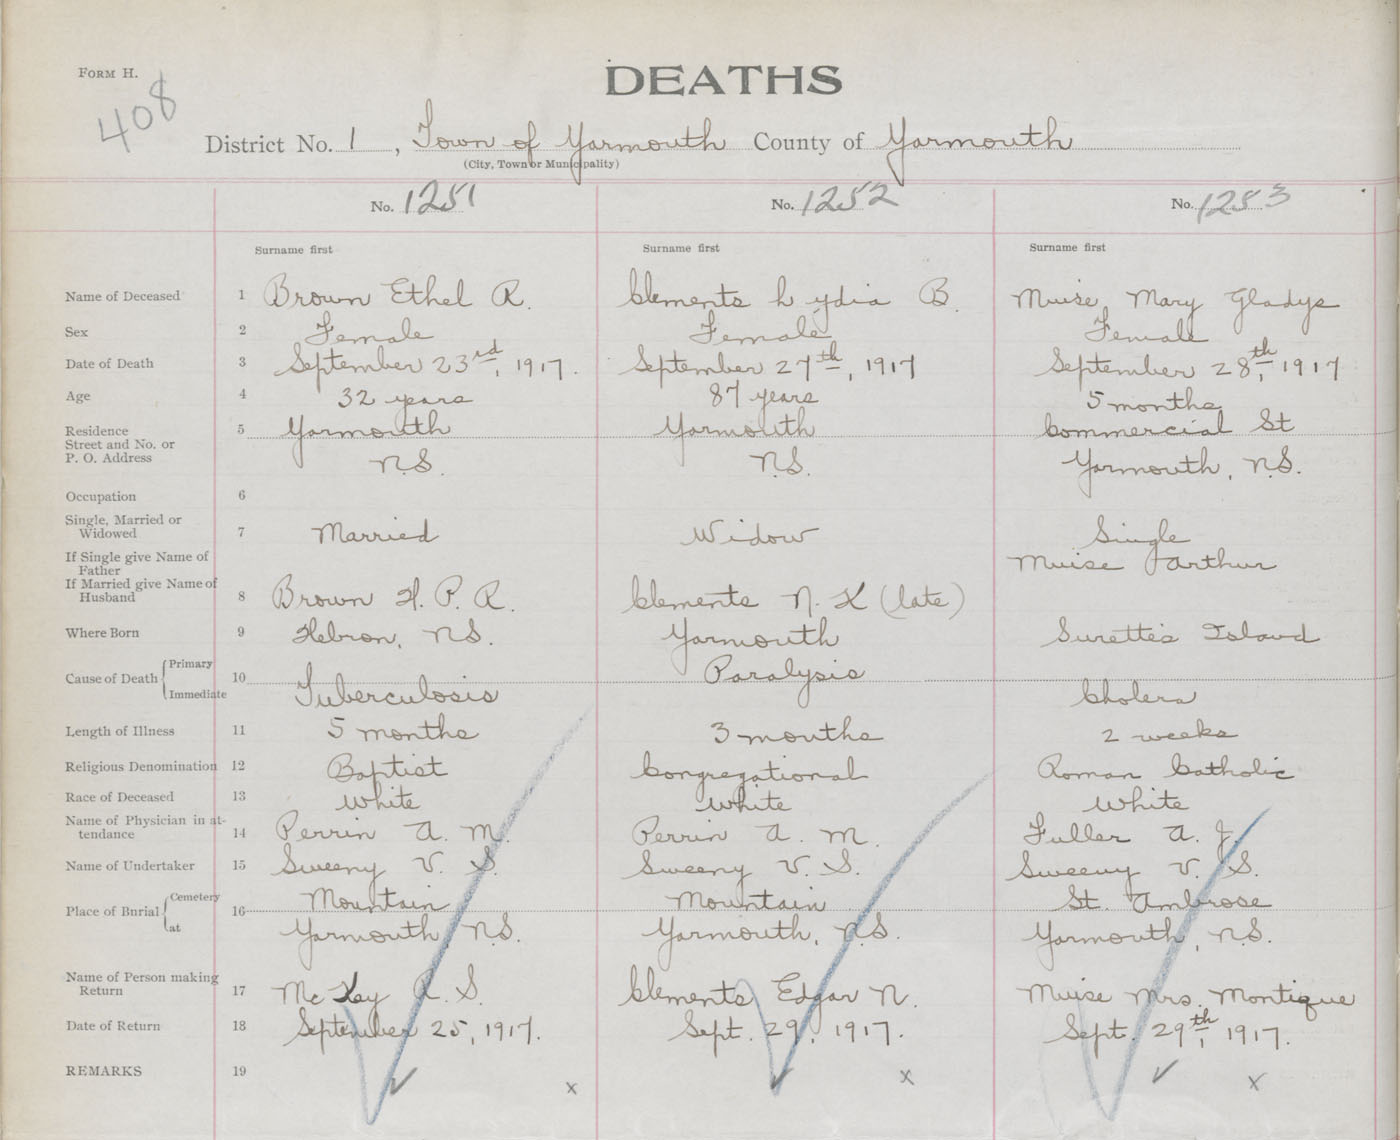 FORM H.
408
DEATHS
District No. 1, Town of Yarmouth County of Yarmouth
(City, Town or Municipality)
No. 1251 No. 1252 No. 1253
Surname first Surname first Surname first
Name of Deceased 1 Brown Ethel R. Clements Lydia B. Muise, Mary Gladys
Sex 2 Female Female Female
Date of Death 3 September 23rd, 1917. September 27th, 1917 September 28th, 1917
Age 4 32 years 87 years 5 months
Residence 5 Yarmouth Yarmouth Commercial St
Street and No. or
P. O. Address N.S. N.S. Yarmouth, N.S.
Occupation 6
Single, Married or
Widowed 7 Married Widow Single
If Single give Name of
Father Muise Arthur
If Married give Name of
Husband 8 Brown H. P. R. Clements N. K (late)
Where Born 9 Hebron, N.S. Yarmouth Surette's Island
Cause of Death Primary 10 Paralysis
Immediate Tuberculosis Cholera
Length of Illness 11 5 months 3 months 2 weeks
Religious Denomination 12 Baptist Congregational Roman Catholic
Race of Deceased 13 White White White
Name of Physician in at-
tendance 14 Perrin A. M. Perrin A. M. Fuller A. J.
Name of Undertaker 15 Sweeny V. S. Sweeny V. S. Sweeny V. S.
Place of Burial Cemetery 16 Mountain Mountain St. Ambrose
at Yarmouth, N.S. Yarmouth, N.S. Yarmouth, N.S.
Name of Person making
Return 17 McKay R. S. Clements Edgar N. Muise Mrs. Montique
Date of Return 18 September 25, 1917. Sept. 29, 1917. Sept. 29th, 1917.
REMARKS 19 ✓ x ✓ x ✓ x